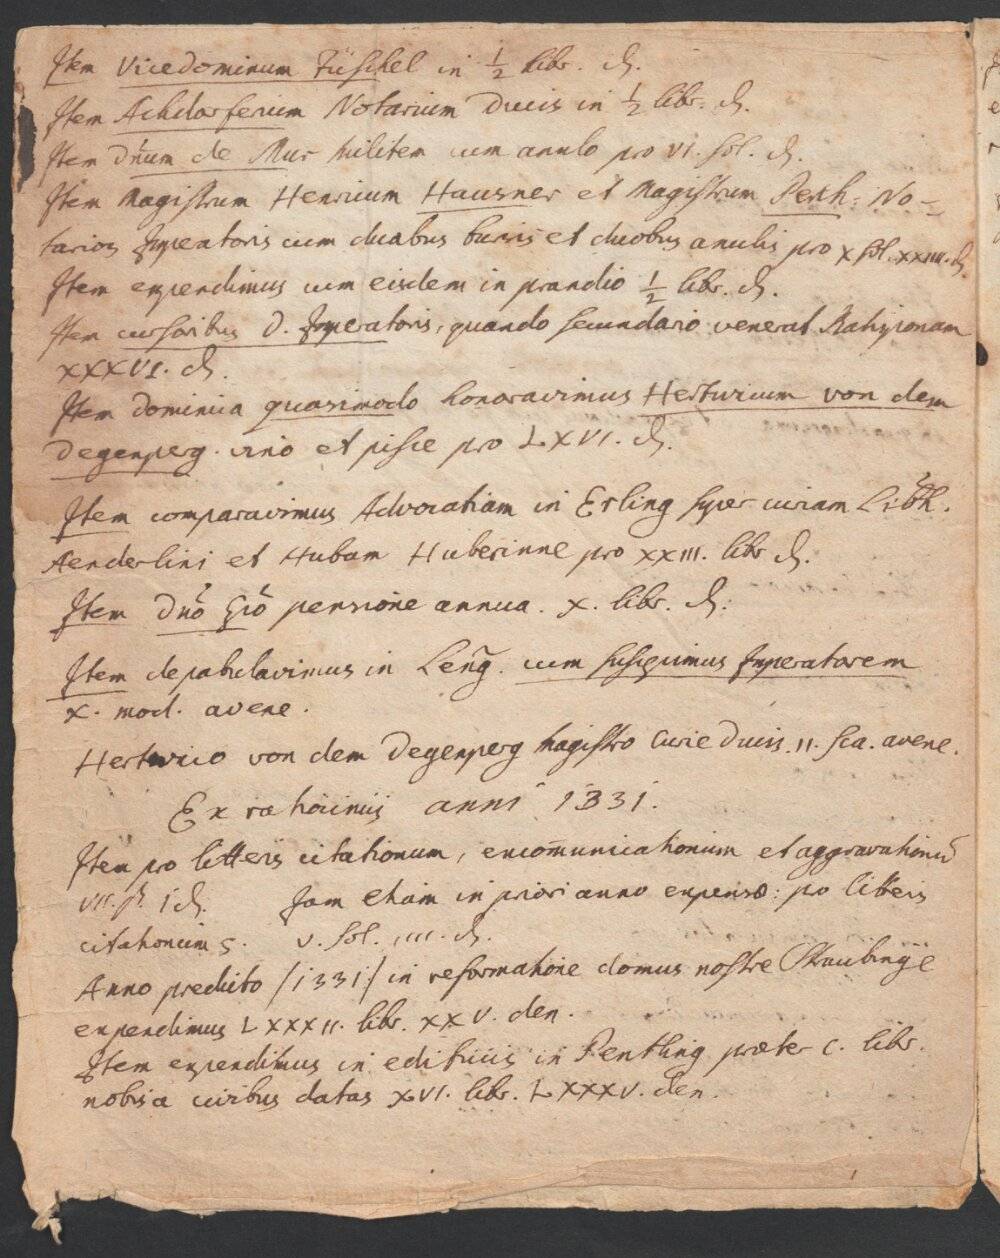 Item Vicedominum Tüschel in ½ libr. ₰.
Item Achdorferium Notarium Ducis in ½ libr. ₰.
Item Dn̄um de Mur militem cum anulo pro VI. sol. ₰.
Item Magistrum Henricum Hausner et Magistrum Perth: No-
tarios Imperatoris cum duabus bursis et duobus anulis pro X sol. XXIIII. ₰.
Item expendimus cum eisdem in prandio ½ libr. ₰.
Item cursoribus D. Imperatoris, quando secundario venerat Ratisponam
XXXVI. ₰.
Item dominica quasimodo honoravimus Hertwicum von dem
Degenperg. vino et pisce pro LXVI. ₰.
Item comparavimus Advocatiam in Erling super curiam Libh.
Aenderlini et Hubam Huberinne pro XXIII. libr ₰.
Item Dn̄o pensione annua. X. libr. ₰.
Item depabulavimus in Leng̃. cum suscepimus Imperatorem
X. mod. avene.
Hertwico von dem Degenperg Magistro Curie Ducis. II. sca. avene.
Ex rationciniis anni 1331.
Item pro litteris citationum, excom̄unicationum et aggravationũ
VII. ß. 1 ₰. Jam etiam in priori anno expensæ: po litteris
citationum V. sol. IIII. ₰.
Anno predicto /1331/ in reformatione domus nostre Straubingæ
expendimus LXXXII. libr. XXV. den.
Item expendimus in edificiis in Pentling præter C. libr.
nobis a civibus datas XVI. libr. LXXXV. den.